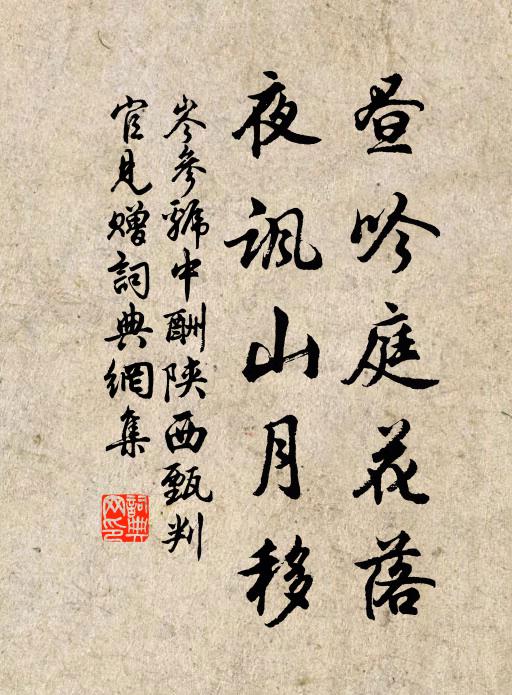 昼吟庭花落
夜讽山月移
岑參虢中酬陕西甄判
官見赠詞典網集
詞典网印